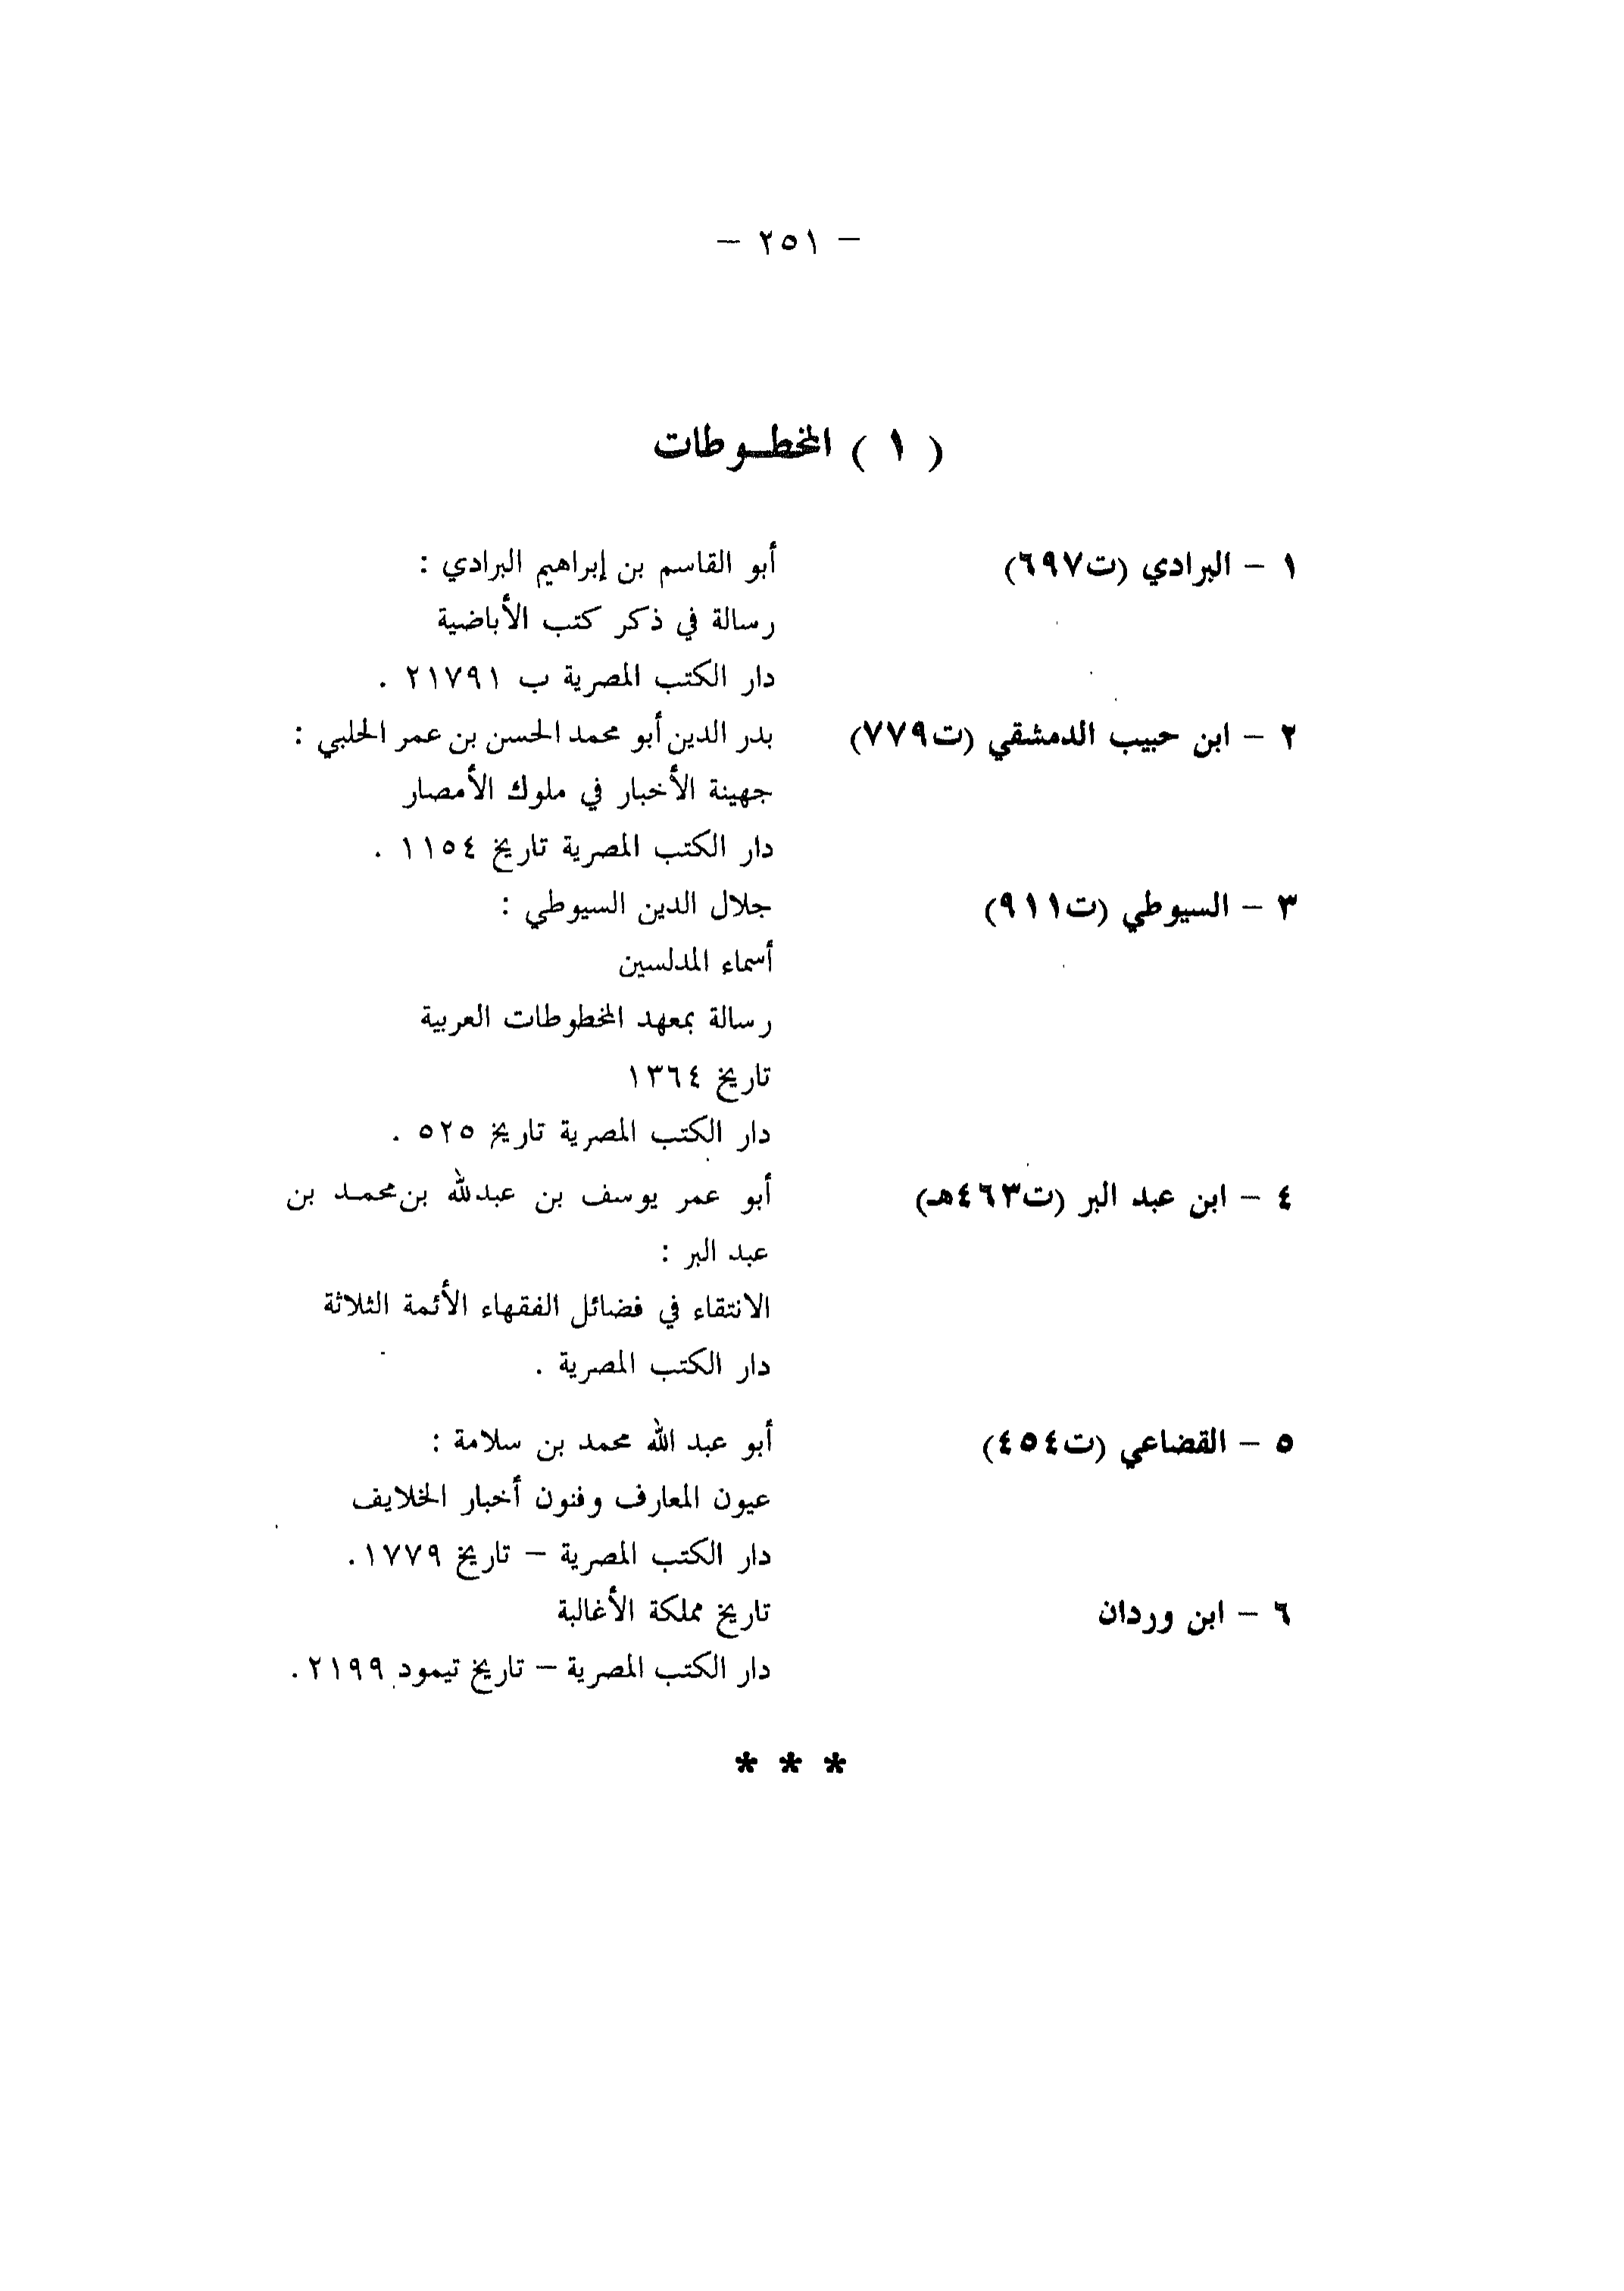 – ٢٥١ –
( ١ ) المخطوطات
١ – البرادي (ت٦٩٧) أبو القاسم بن إبراهيم البرادي :
رسالة في ذكر كتب الأباضية
دار الكتب المصرية ب ٢١٧٩١ .
٢ – ابن حبيب الدمشقي (ت٧٧٩) بدر الدين أبو محمد الحسن بن عمر الحلبي :
جهينة الأخبار في ملوك الأمصار
دار الكتب المصرية تاريخ ١١٥٤ .
٣ – السيوطي (ت٩١١) جلال الدين السيوطي :
أسماء المدلسين
رسالة بمعهد المخطوطات العربية
تاريخ ١٣٦٤
دار الكتب المصرية تاريخ ٥٢٥ .
٤ – ابن عبد البر (ت٤٦٣هـ) أبو عمر يوسف بن عبدلله بن محمد بن
عبد البر :
الانتقاء في فضائل الفقهاء الأئمة الثلاثة
دار الكتب المصرية .
٥ – القضاعي (ت٤٥٤) أبو عبد الله محمد بن سلامة :
عيون المعارف وفنون أخبار الخلايف
دار الكتب المصرية – تاريخ ١٧٧٩.
٦ – ابن وردان تاريخ مملكة الأغالبة
دار الكتب المصرية – تاريخ تيمود ٢١٩٩.
* * *